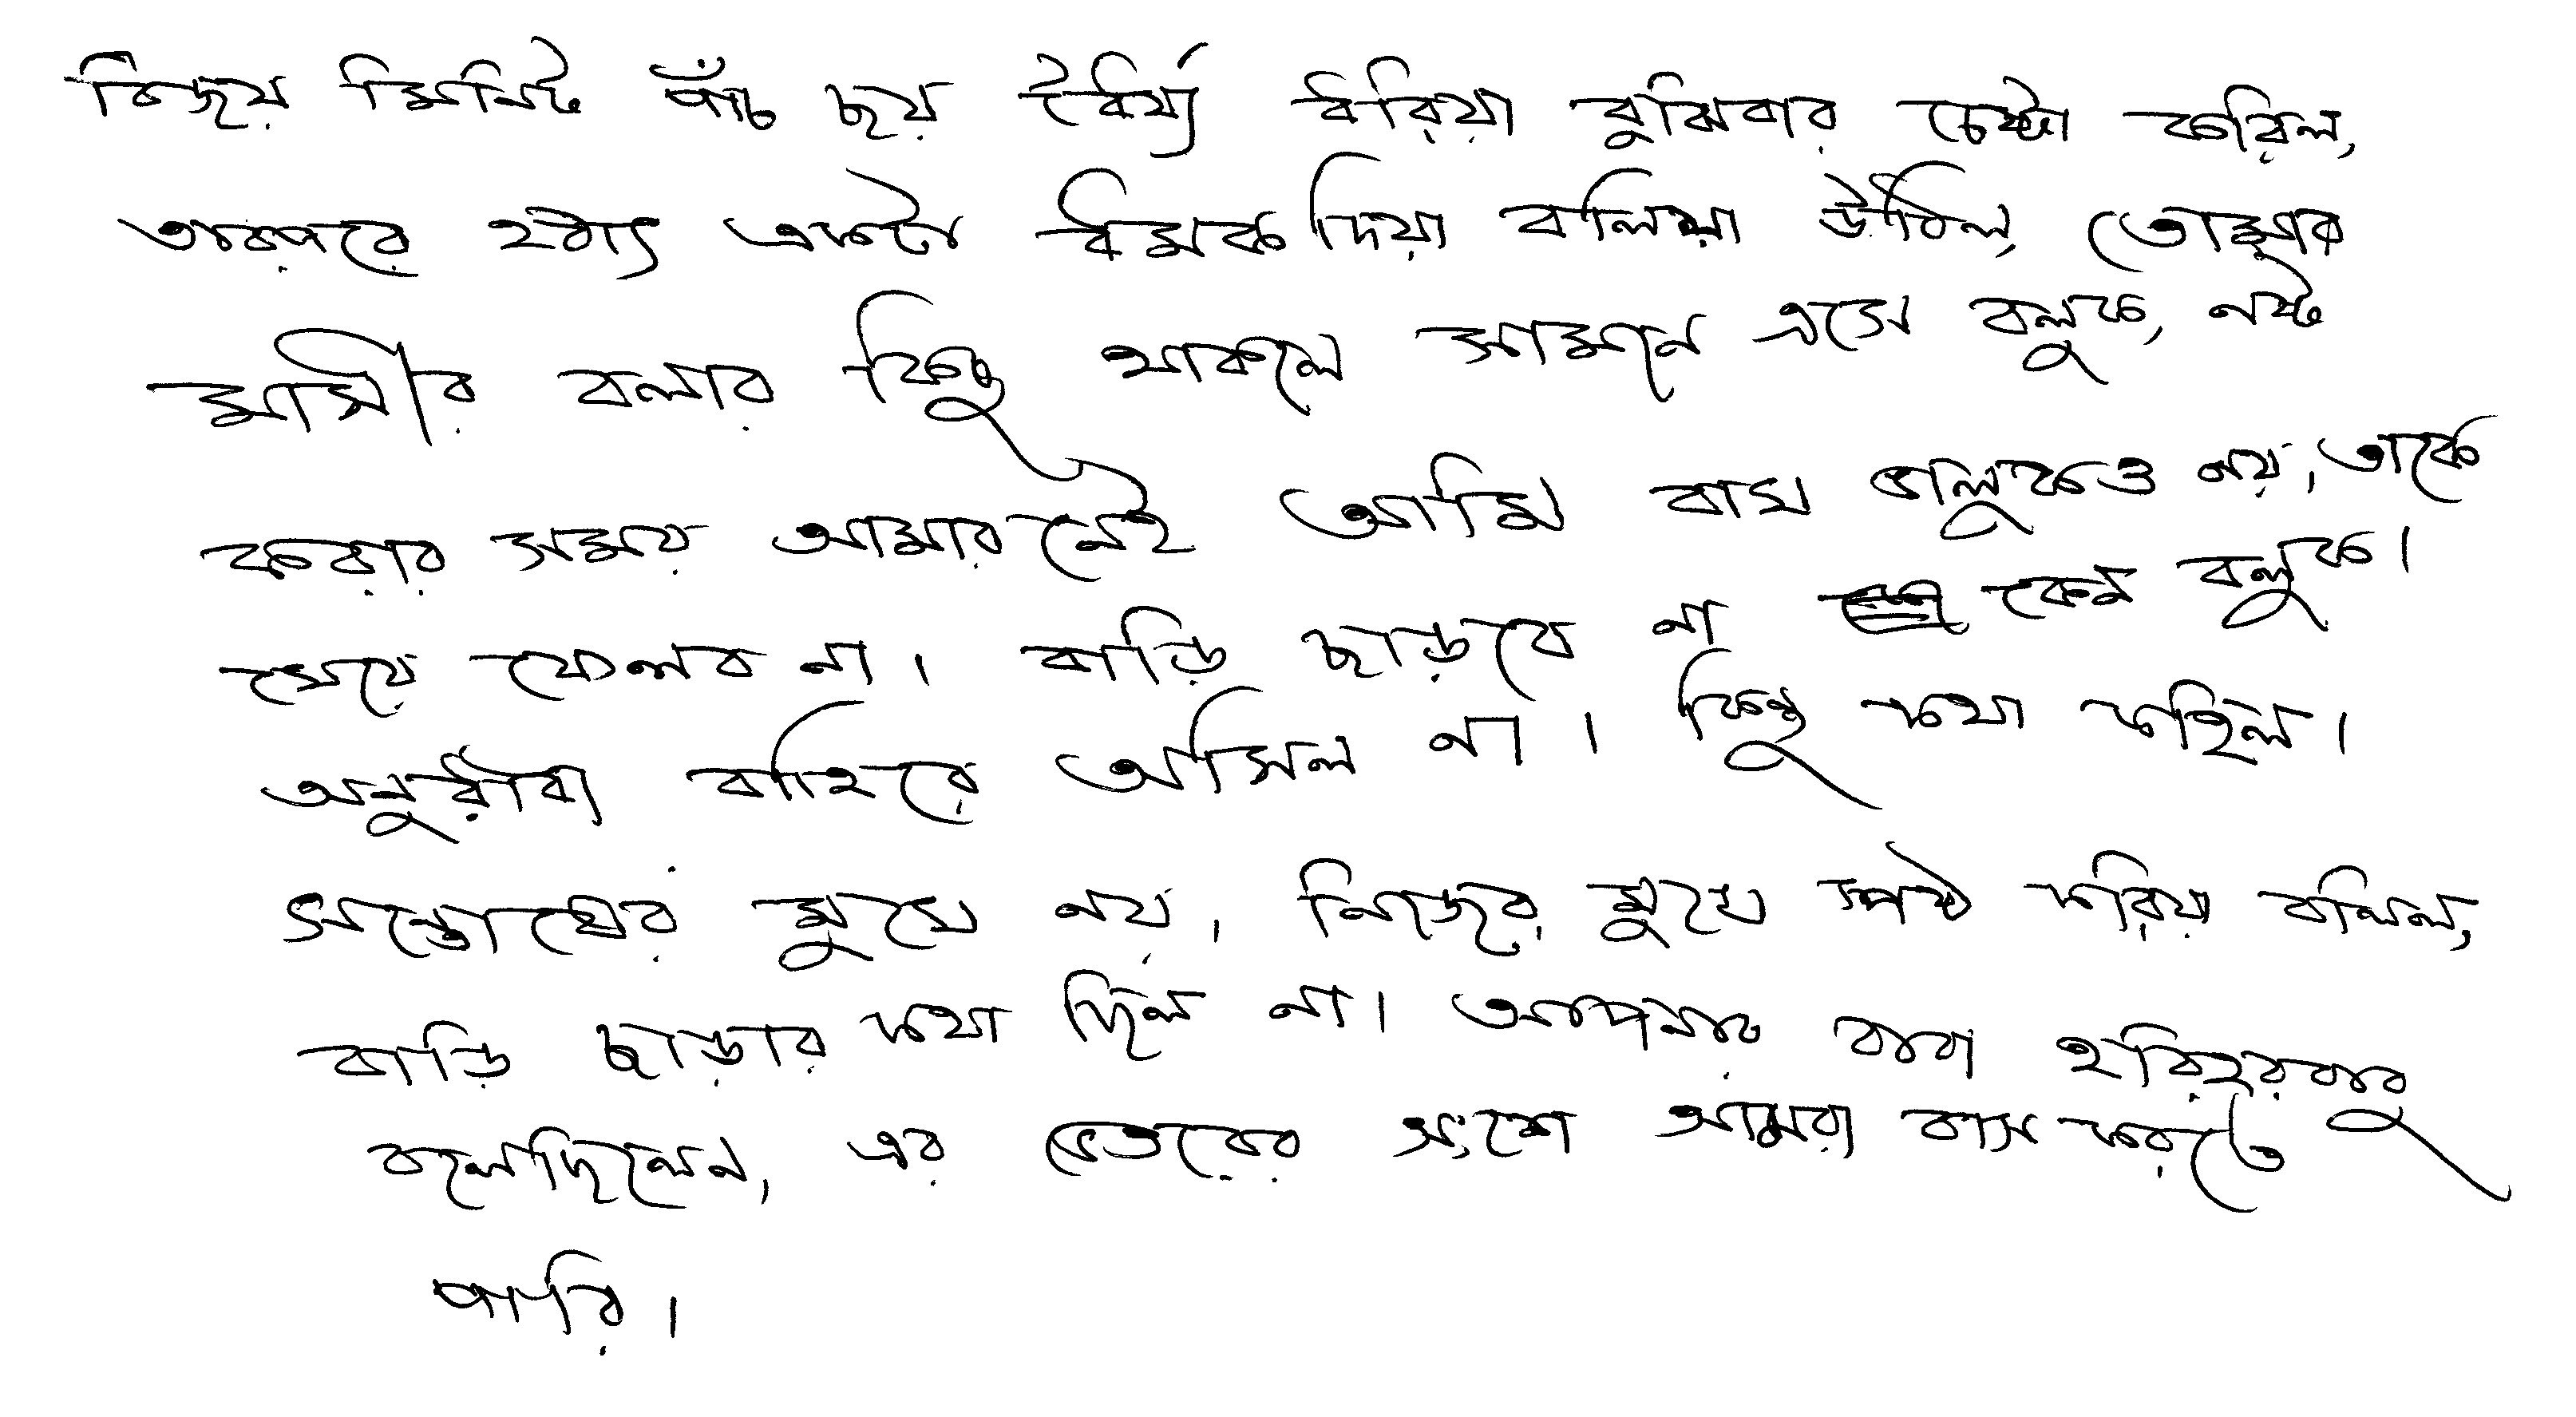 বিজয় মিনিট পাঁচ ছয় ধৈর্য্য ধরিয়া বুঝিবার চেষ্টা করিল,
তারপরে হঠাৎ একটা ধমক দিয়া বলিয়া উঠিল, তোমার
মাসীর বলার কিছু থাকলে সামনে এসে বলুক, নষ্ট
করার সময় আমার নেই আমি বাঘ ভালুকও নয়, তাকে
খেয়ে ফেলব না। বাড়ি ছাড়বে না কেন বলুক।
অনুরাধা বাহিরে আসিল না। কিন্তু কথা কহিল।
সন্তোষের মুখে নয়, নিজের মুখে স্পষ্ট করিয়া বলিল,
বাড়ি ছাড়ার কথা ছিল না। আপনার বাবা হরিহরবাবু
বলেছিলেন, এর ভেতরের অংশে আমরা বাস করতে
পারি।